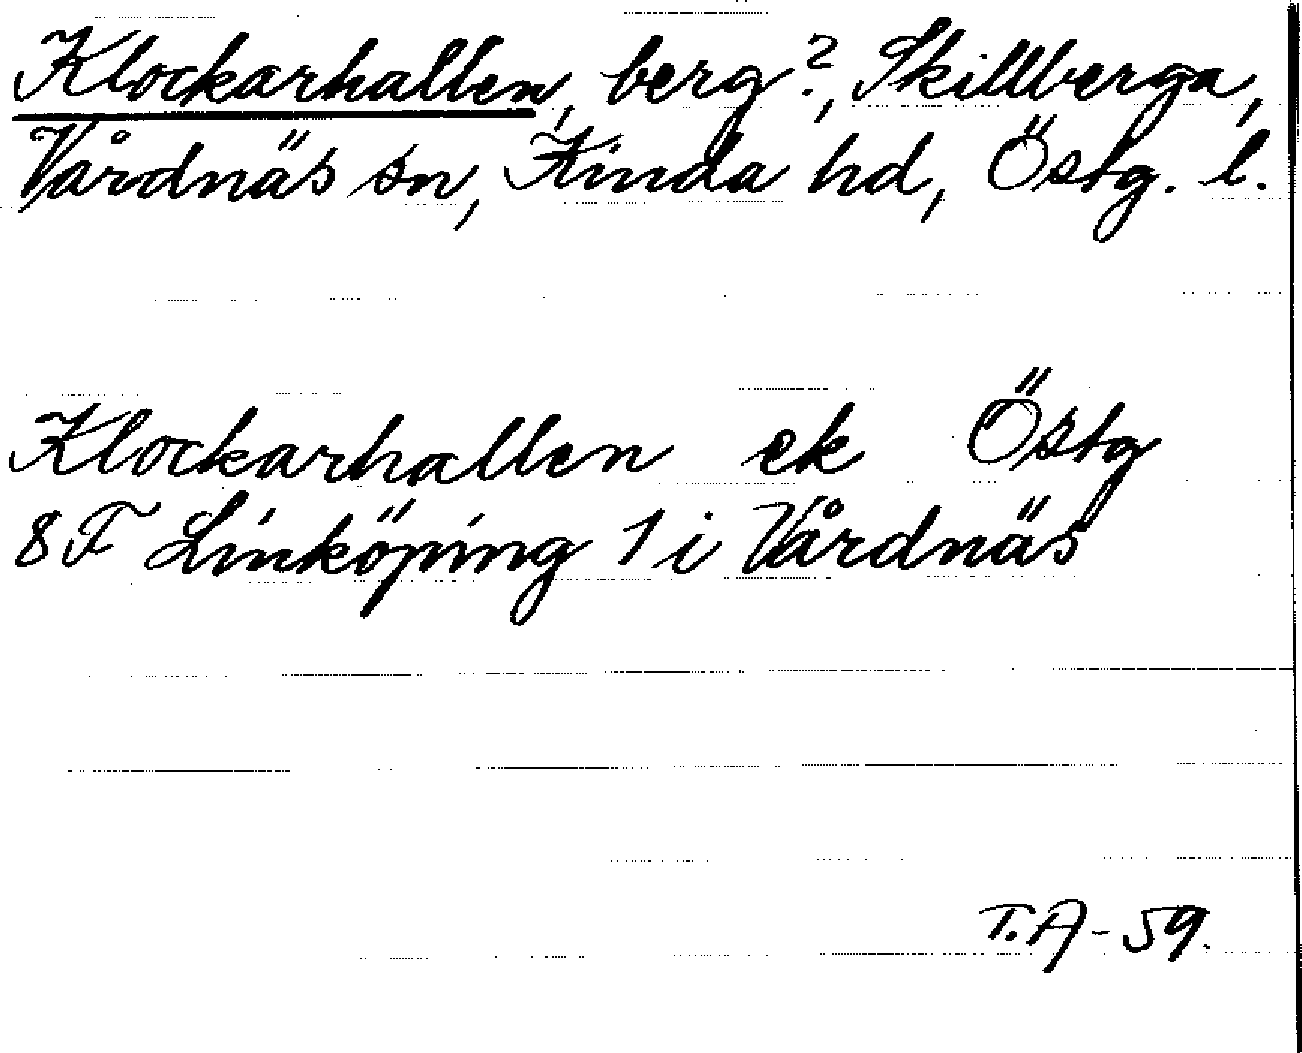 Klockarhallen, berg?, Skillberga,
Vårdnäs sn, Kinda hd, Östg. l.
Klockarhallen ek Östg
8F Linköping 1 i Vårdnäs
T.A-59.